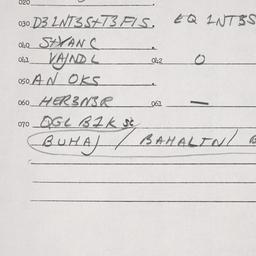 020
030 D3 1NT3S+T3 F1S. EQ 1NT3S
040 S+XANC
041 VAJNDL 042 0
050 AN OKS
060 HER3N3R 061 —
070 QGL B1K st
BUHAJ / BAHALTN/ B